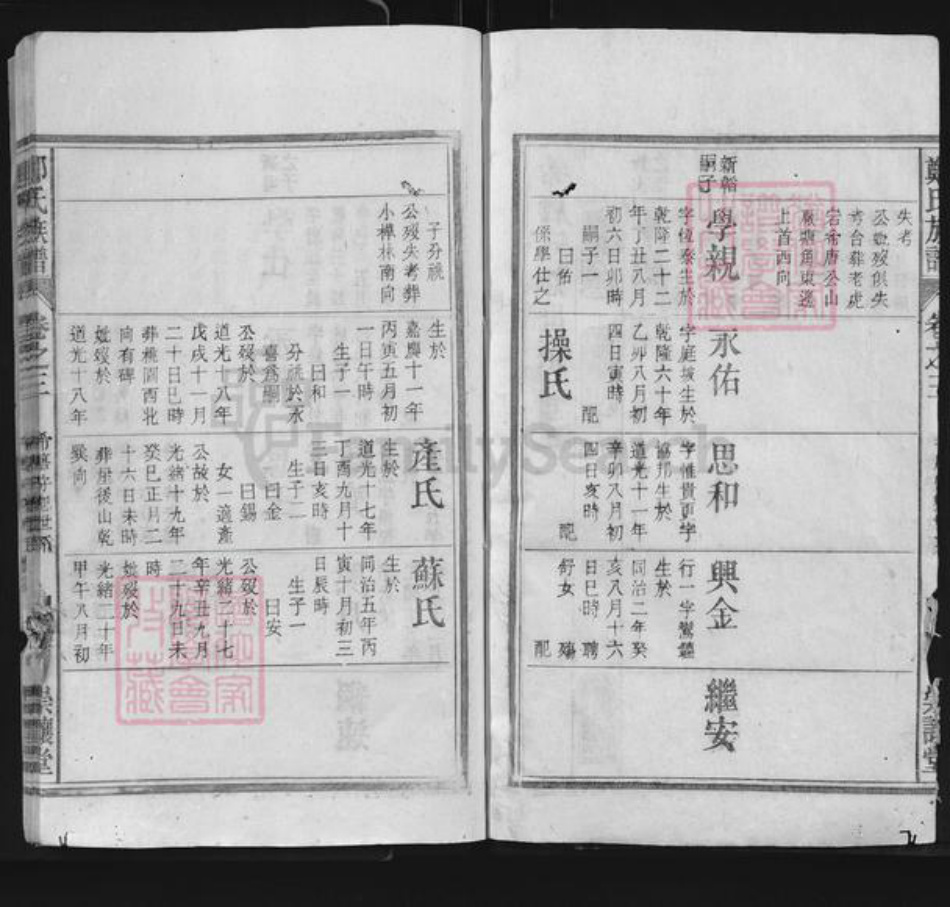 鄭氏族譜
卷之三
崇讓堂
失考
公妣歿俱失
考合葬老虎
宕希唐公山
上首酉向
新船
嗣子
學親
字恆泰生於
乾隆二十二
年丁丑八月
初六日卯時
嗣子一
曰佑
係學仕之
永佑
字庭城生於
乾隆六十年
乙卯八月初
四日寅時
配
操氏
思和
字惟貴更字
協邦生於
道光十一年
辛卯八月初
四日亥時
配
興金
行一字鸞鑣
生於
同治二年癸
亥八月十六
日巳時 聘
舒女 殤
配
繼安
子分視
公歿失考葬
小樺林南向
生於
嘉慶十一年
丙寅五月初
一日午時
生子一
曰和
分視於永
喜為嗣
公歿於
道光十八年
戊戌十一月
二十日巳時
葬桃園西北
向有碑
妣歿於
道光十八年
產氏
生於
道光十七年
丁酉九月十
三日亥時
生子二
曰金
曰錫
女一適產
公故於
光緒十九年
癸巳正月二
十六日未時
葬屋後山乾
巽向
蘇氏
生於
同治五年丙
寅十月初三
日辰時
生子一
曰安
公歿於
光緒二十七
年辛丑九月
二十九日未
時
妣歿於
光緒二十年
甲午八月初
鄭氏族譜
卷之三
崇讓堂
FamilySearch